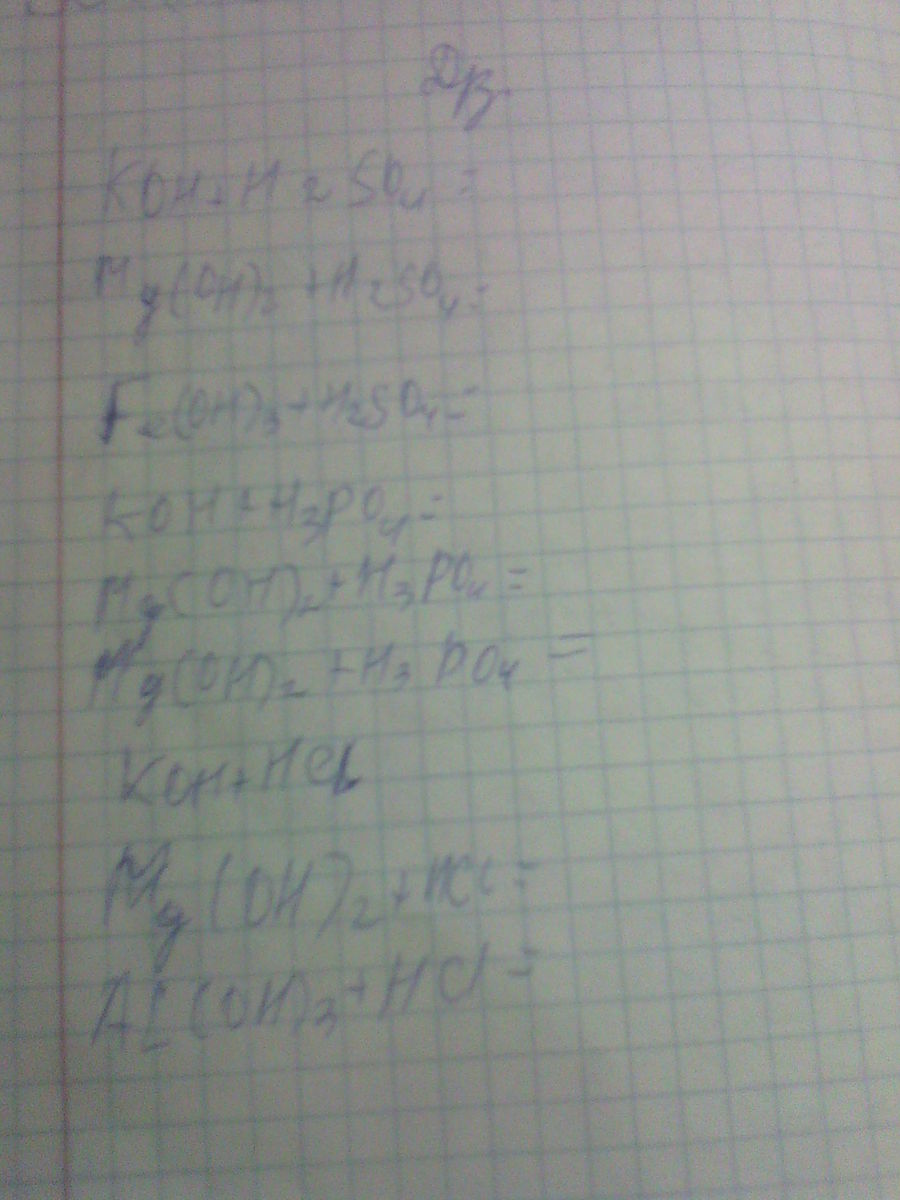 Дз.
KOH + H2SO4 =
Mg(OH)2 + H2SO4 =
Fe(OH)3 + H2SO4 =
KOH + H3PO4 =
Mg(OH)2 + H3PO4 =
Mg(OH)2 + H3PO4 =
KOH + HCl
Mg(OH)2 + HCl =
Al(OH)3 + HCl =